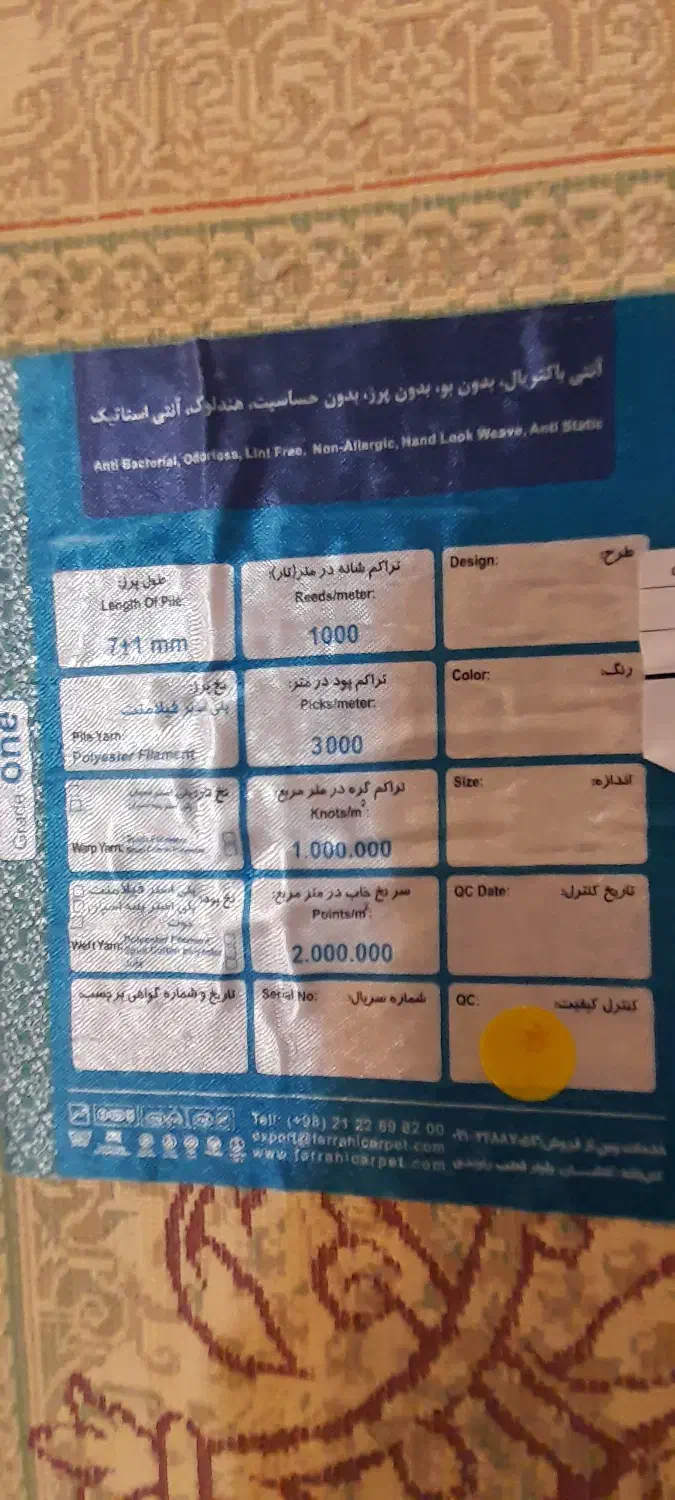 آنتی باکتریال، بدون بو، بدون پرز، بدون حساسیت، هندلوک، آنتی استاتیک
Anti Bacterial, Odorless, Lint Free, Non-Allergic, Hand Look Weave, Anti Static
طرح:
Design:
تراکم شانه در متر(تار):
Reeds/meter:
1000
طول پرز:
Length Of Pile:
7±1 mm
رنگ:
Color:
تراکم پود در متر:
Picks/meter:
3000
نخ پرز:
پلی استر فیلامنت
Pile Yarn:
Polyester Filament
اندازه:
Size:
تراکم گره در متر مربع:
Knots/m²:
1.000.000
نخ تار:
Warp Yarn:
تاریخ کنترل:
QC Date:
سر نخ خاب در متر مربع:
Points/m²:
2.000.000
نخ پود:
پلی استر فیلامنت
Weft Yarn:
Polyester Filament
کنترل کیفیت:
QC:
شماره سریال:
Serial No:
تاریخ و شماره گواهی برچسب:
Tell: (+98) 21 22 69 82 00
export@farrahicarpet.com
www.farrahicarpet.com
خدمات پس از فروش:
Grace one